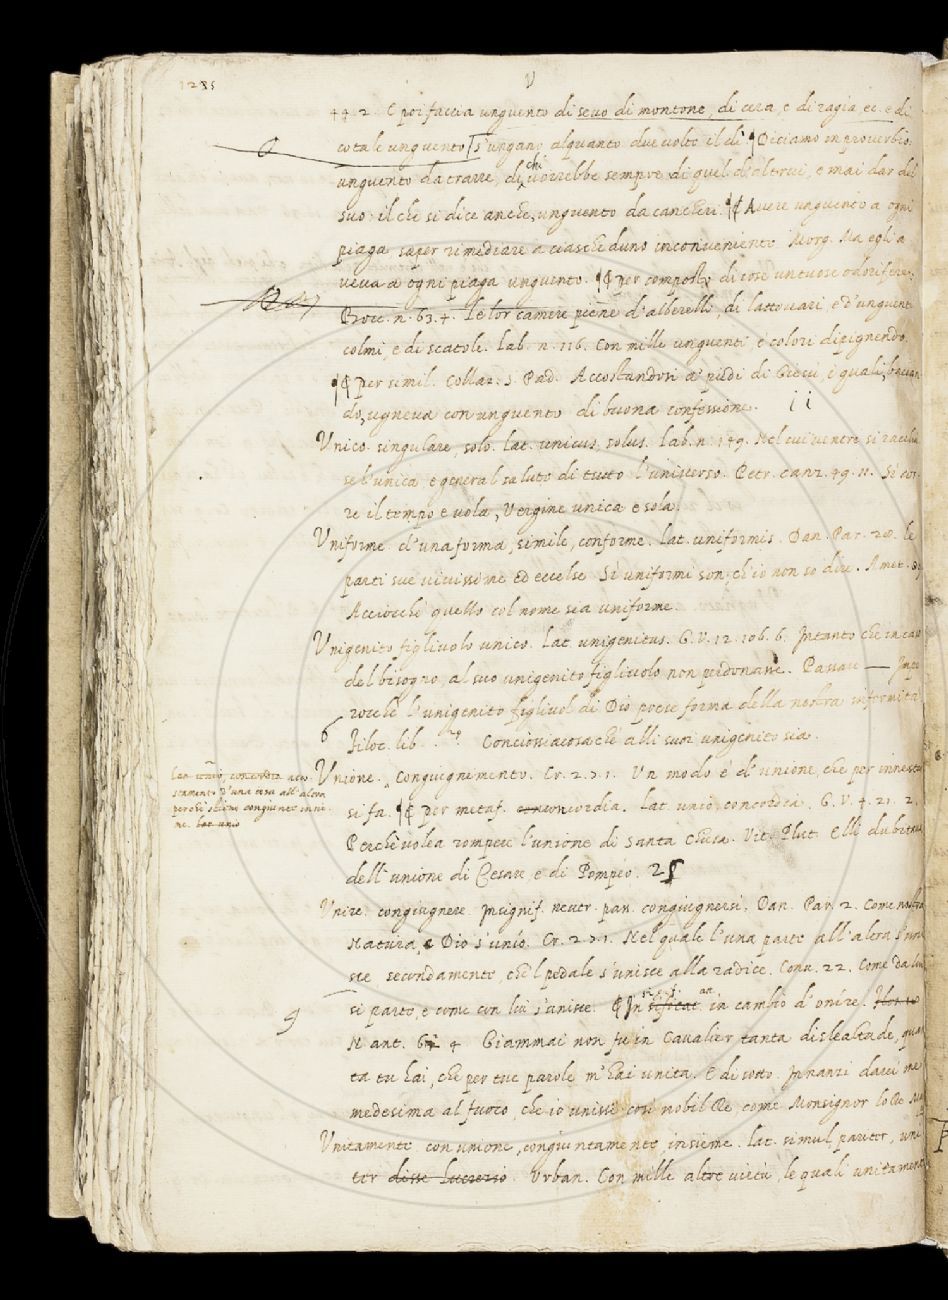 1285
V
44. 2. E poi faccia unguento di sevo di montone, di cera, e di ragia, ec. e di
cotale unguento s'ungano alquanto due volte il dì ¶ Diciamo in proverbio.
unguento da trarre, di chi vorrebbe sempre di quel d'altrui, e mai dar del
suo: il che si dice anche, unguento da cancheri. ¶ Avere unguento a ogni
piaga saper rimediare a ciascheduno inconveniente Morg. Ma egli a
veva a ogni piaga unguento. ¶ per composto di cose untuose odorifere.
Bocc. n. 63. 4. Le lor camere piene d'alberelli, di lattovari, e d'unguenti
colmi, e di scatole. Lab. n. 116. Con mille unguenti, e colori dipignendo.
¶ per simil. Collaz. S. Pad. Accostandosi a' piedi di Giesu, i quali, bacian
do, ugneva con unguento di buona confessione.
Unico. singulare, solo. Lat. unicus, solus. Lab. n. 149. Nel cui venere si racchiu
se l'unica e general salute di tutto l'universo. Petr. canz. 49. 11. Si cor
re il tempo e vola, Vergine unica e sola.
Uniforme. d'una forma, simile, conforme. Lat. uniformis. Dan. Par. 27. le
parti sue vivissime ed eccelse Sì uniformi son, ch'io non so dire. Amet.
Acciocchè quello col nome sia uniforme.
Unigenito figliuolo unico. Lat. unigenitus. G. V. 12. 106. 6. Intanto che in caso
del bisogno, al suo unigenito figliuolo non perdonare. Passav — Impe
rocchè l'unigenito figliuol di Dio prese forma della nostra informità
6 Filoc. lib. Conciossiacosachè alli suoi unigenito sia.
Unione. Congiugnimento. Cr. 2. 7. 1. Un modo è d'unione, che per innesta
si fa. ¶ per metaf. concordia. Lat. unio, concordia. G. V. 4. 21. 2.
Perchè volea rompere l'unione di Santa Chiesa. Vit. Plut. Elli dubitava
dell'unione di Cesare, e di Pompeo. 25
Unire. congiugnere. In signif. neutr. pass. congiugnersi. Dan. Par. 2. Come nostra
Natura, e Dio s'unìo. Cr. 2. 7. 1. Nel quale l'una parte all'altra s'uni
sce. secondamente, che 'l pedale s'unisce alla radice. Conv. 22. Come da lui
si parte, e come con lui s'unisce. ¶ In signif. att. in cambio d'onire.
9 N. ant. 61. 4 Giammai non fu in Cavalier tanta dislealtade, quan
ta tu hai, che per tue parole m'hai unita. E di sotto. Innanzi darei me
medesima al fuoco, che io unissi così nobil Re, come Monsignor lo Re Me
Unitamente con unione, congiuntamente, insieme. Lat. simul, pariter, uni
ter disse Lucrezio. Urban. Con mille altre virtù, le quali unitamente